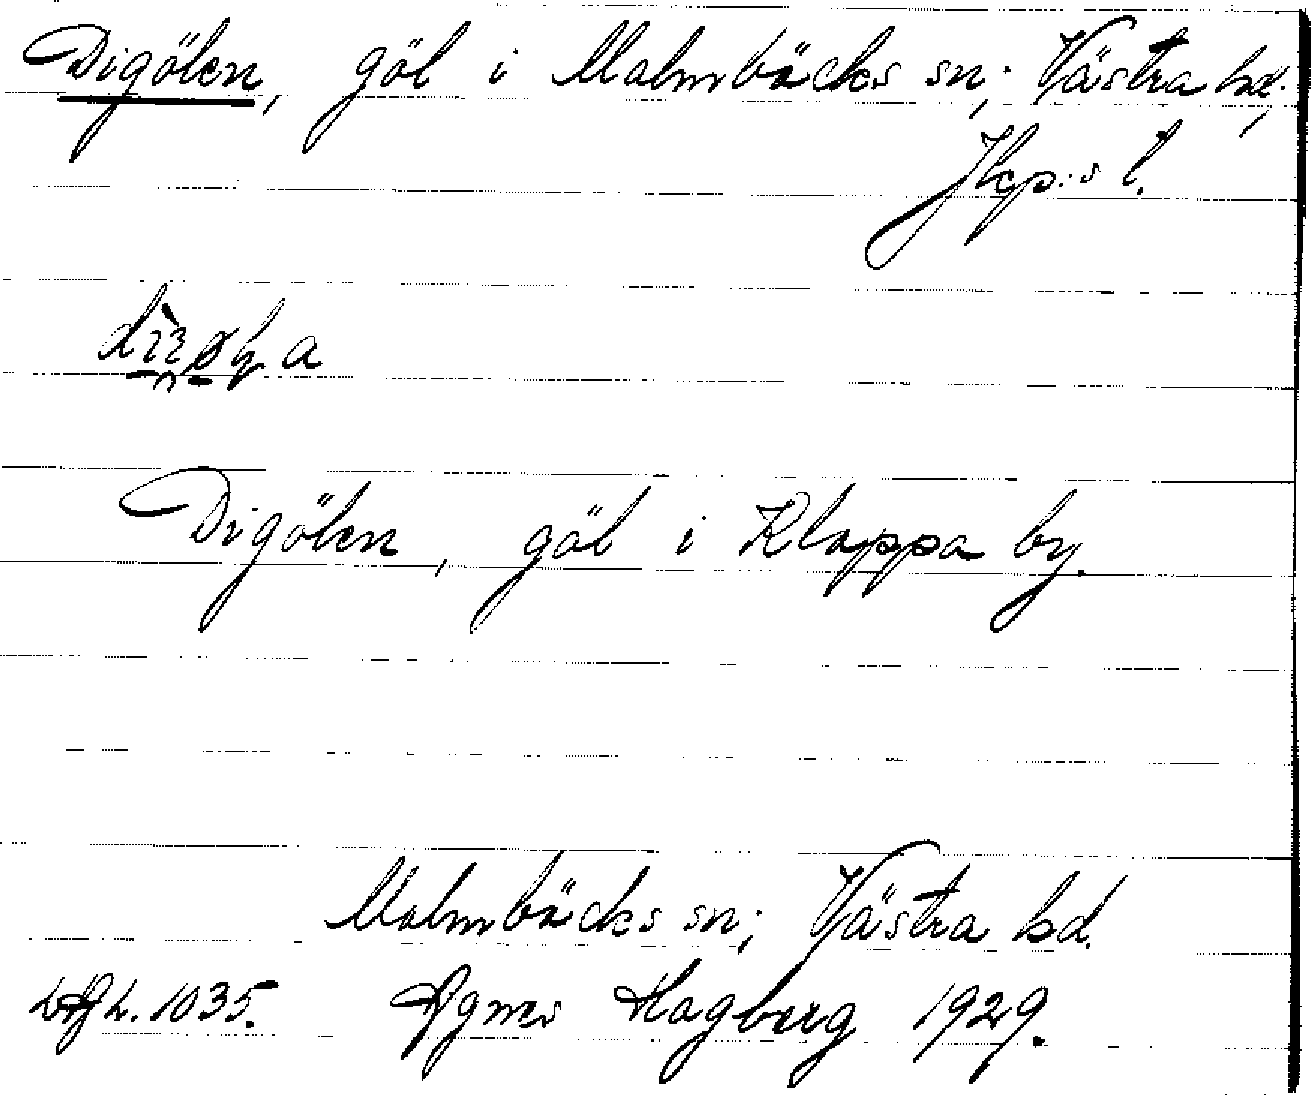 Digölen, göl i Malmbäcks sn, Västra hd,
Jkp:s l.
Digölen, göl i Klappa by.
Malmbäcks sn, Västra hd.
1035. Agnes Hagberg 1929.